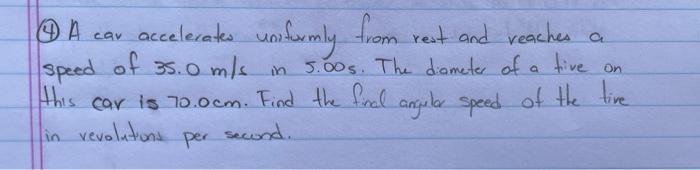 ④ A car accelerates uniformly from rest and reaches a
speed of 35.0 m/s in 5.00s. The diameter of a tire on
this car is 70.0cm. Find the final angular speed of the tire
in revolutions per second.